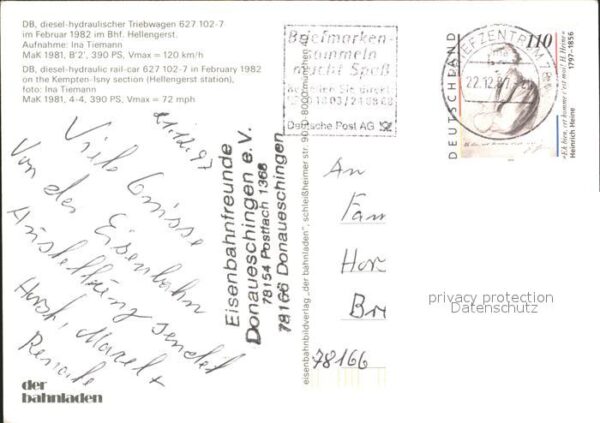 DB, diesel-hydraulischer Triebwagen 627 102-7
im Februar 1982 im Bhf. Hellengerst.
Aufnahme: Ina Tiemann
MaK 1981, B'2', 390 PS, Vmax = 120 km/h
DB, diesel-hydraulic rail-car 627 102-7 in February 1982
on the Kempten-Isny section (Hellengerst station),
foto: Ina Tiemann
MaK 1981, 4-4, 390 PS, Vmax = 72 mph
21.12.97
Viele Grüsse
Von der Eisenbahn
Ausstellung sendet
Horst, Marcel +
Renate
der
bahnladen
Eisenbahnfreunde
Donaueschingen e.V.
78154 Postfach 1368
78166 Donaueschingen
eisenbahnbildverlag „der bahnladen", schleißheimer str. 90, 8000 münchen
Briefmarken-
sammeln
macht Spaß
Deutsche Post AG
BRIEFZENTRUM 78
22.12.97
DEUTSCHLAND
110
„Eh bien, cet homme c'est moi!" H. Heine
1797-1856
Heinrich Heine
An
Fam
Hor
Br
78166
privacy protection
Datenschutz